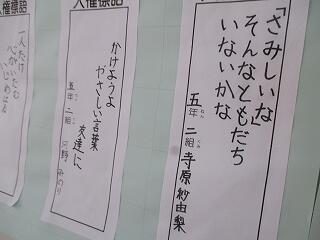 「さみしいな」
そんなともだち
いないかな
五年 二組 寺原紗由梨
人権標語
かけようよ
やさしい言葉
友達に
五年 二組 河野
人権標語
一人だけ